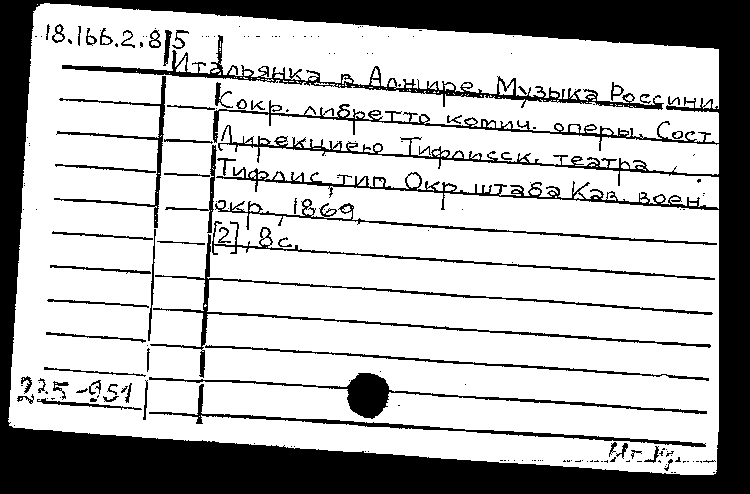 18.166.2.815
Итальянка в Алжире. Музыка Россини.
Сокр. либретто комич. оперы. Сост.
Дирекциею Тифлисск. театра.
Тифлис, тип. Окр. штаба Кав. воен.
окр., 1869.
[2], 8 с.
225-951